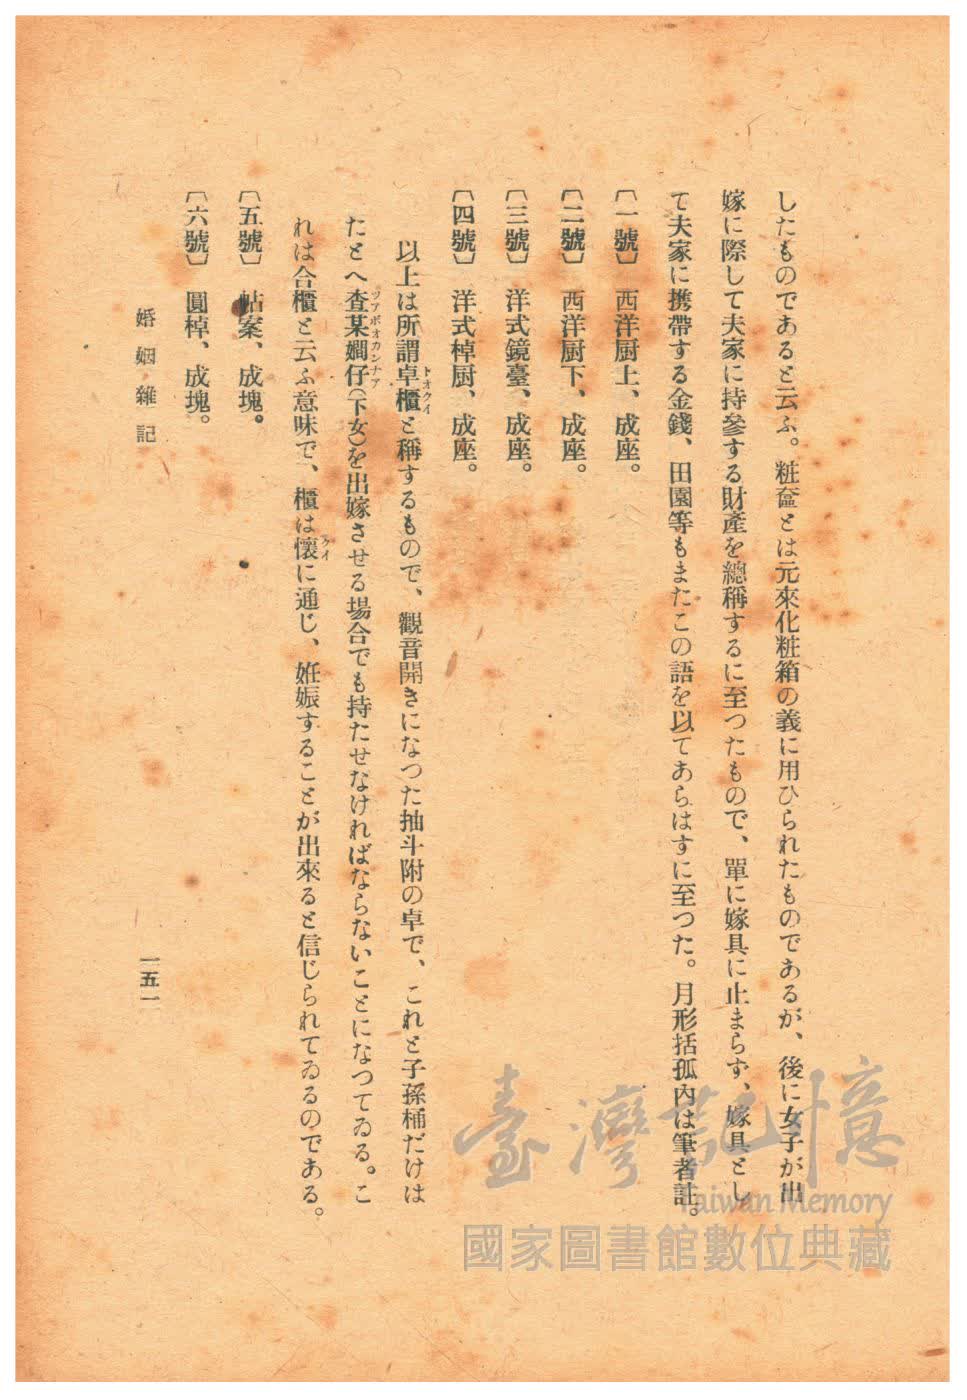 したものであると云ふ。粧奩とは元來化粧箱の義に用ひられたものであるが、後に女子が出
嫁に際して夫家に持參する財產を總稱するに至つたもので、單に嫁具に止まらず、嫁具とし
て夫家に携帶する金錢、田園等もまたこの語を以てあらはすに至つた。月形括孤內は筆者註。
〔一號〕　西洋厨上、成座。
〔二號〕　西洋厨下、成座。
〔三號〕　洋式鏡臺、成座。
〔四號〕　洋式棹厨、成座。
以上は所謂卓櫃と稱するもので、觀音開きになつた抽斗附の卓で、これと子孫桶だけは
トオクイ
たとへ查某嫺仔（下女）を出嫁させる場合でも持たせなければならないことになつてゐる。こ
ツアボオカンナア
れは合櫃と云ふ意味で、櫃は懷に通じ、姙娠することが出來ると信じられてゐるのである。
クイ
〔五號〕　帖案、成塊。
〔六號〕　圓棹、成塊。
婚姻雜記
一五一
臺灣記憶
Taiwan Memory
國家圖書館數位典藏